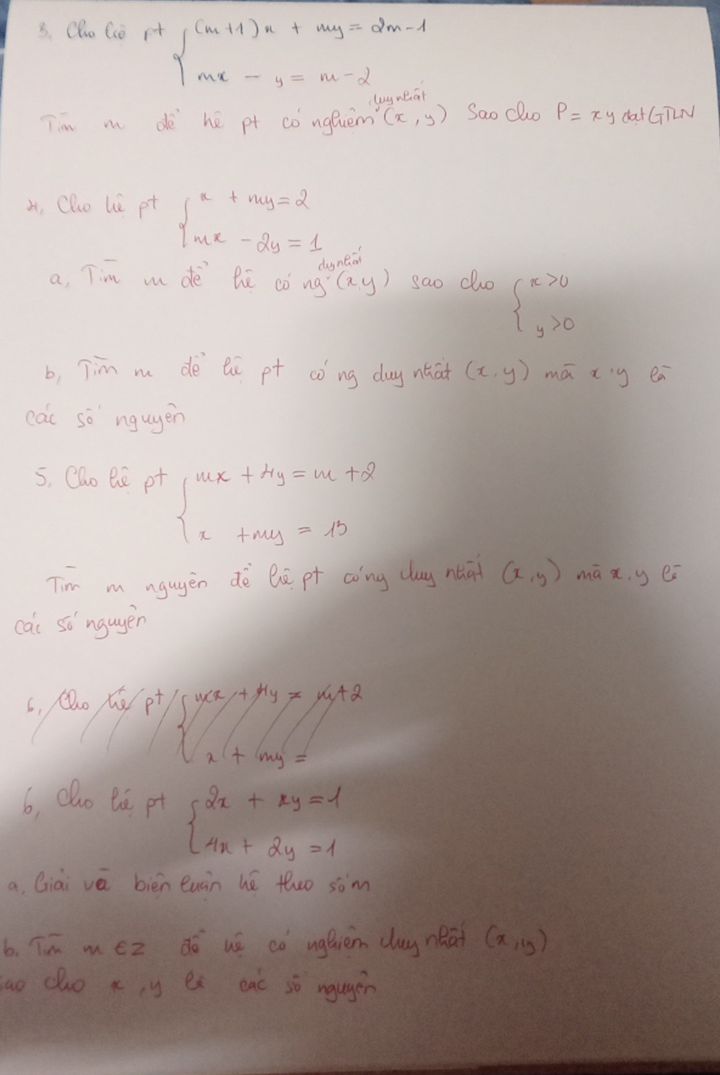 3. Cho hệ pt { (m+1)x + my = 2m-1
mx - y = m-2
Tìm m để hệ pt có nghiệm duy nhất (x, y) sao cho P = xy đạt GTLN
4, Cho hệ pt { x + my = 2
mx - 2y = 1
a, Tìm m để hệ có ng duy nhất (x,y) sao cho { x>0
y>0
b, Tìm m để hệ pt có ng duy nhất (x, y) mà x, y là
các số nguyên
5. Cho hệ pt { mx + 4y = m + 2
x + my = 13
Tìm m nguyên để hệ pt có ng duy nhất (x, y) mà x, y là
các số nguyên
6, Cho hệ pt { mx + 4y = m+2
x + my =
6, Cho hệ pt { 2x + xy = 1
4x + 2y = 1
a, Giải và biện luận hệ theo số m
b. Tìm m ∈ Z để hệ có nghiệm duy nhất (x, y)
sao cho x, y là các số nguyên